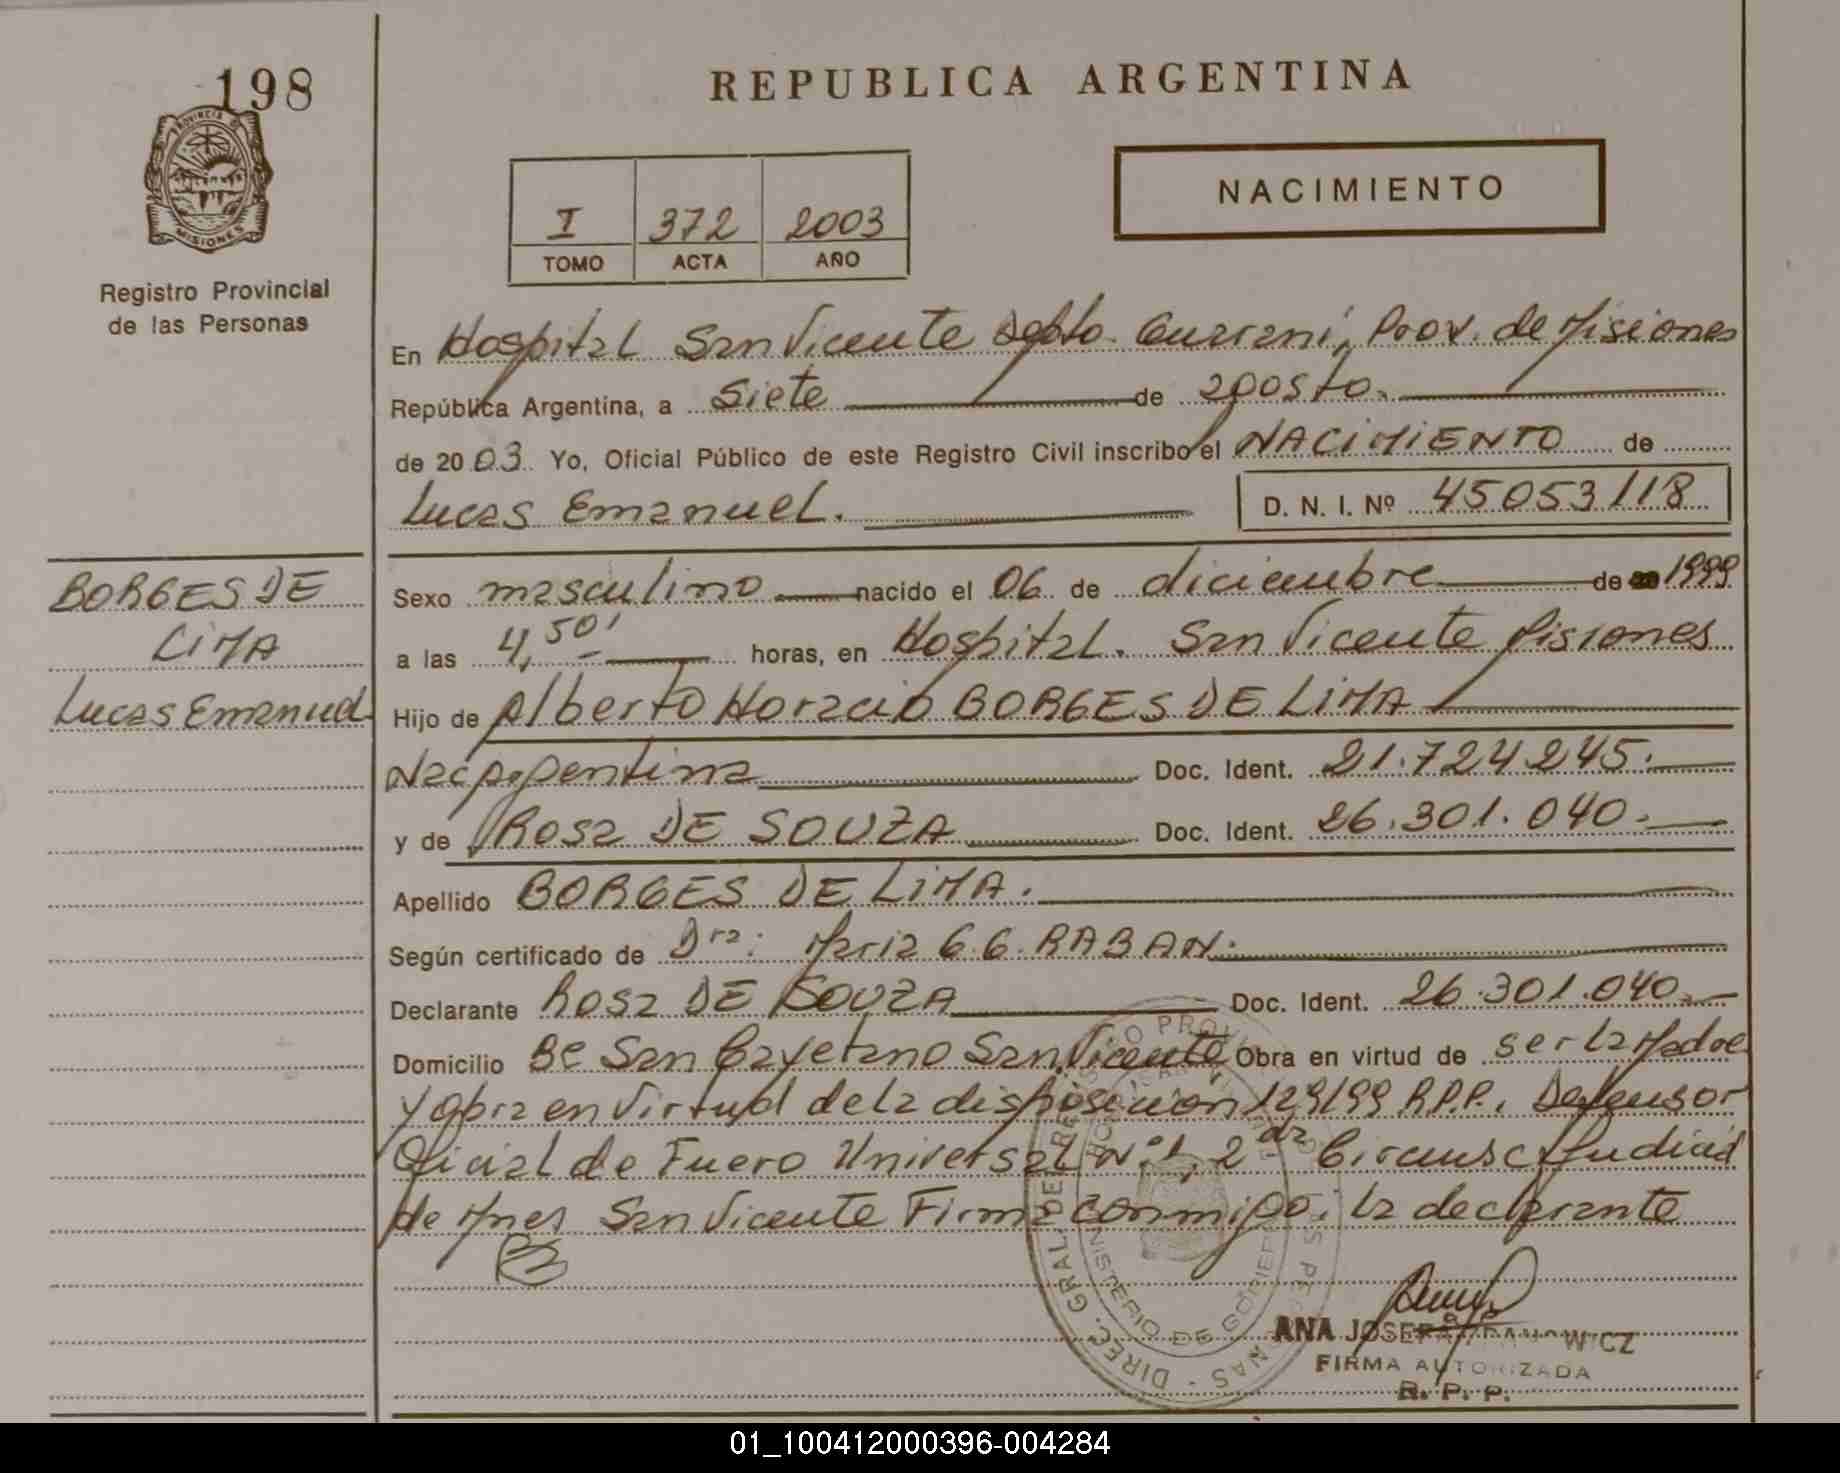 198
REPUBLICA ARGENTINA
PROVINCIA DE
MISIONES
NACIMIENTO
I 372 2003
TOMO ACTA AÑO
Registro Provincial
de las Personas
En Hospital San Vicente Depto. Guarani, Prov. de Misiones
República Argentina, a Siete de agosto.
de 2003 Yo, Oficial Público de este Registro Civil inscribo el NACIMIENTO de
Lucas Emanuel. D. N. I. Nº 45053118
BORGES DE
LIMA
Lucas Emanuel
Sexo masculino nacido el 06 de diciembre de 1999
a las 4,50' horas, en Hospital. San Vicente Misiones
Hijo de Alberto Horacio BORGES DE LIMA
Nac. Argentina Doc. Ident. 21.724.245.
y de Rosa DE SOUZA Doc. Ident. 26.301.040.
Apellido BORGES DE LIMA.
Según certificado de Dra: Maria G.G. RABAN.
Declarante Rosa DE SOUZA Doc. Ident. 26.301.040
Domicilio Bº San Cayetano San Vicente Obra en virtud de ser la Madre
y obra en virtud de la disposición 129/99 R.P.P. Defensor
Oficial de Fuero Universal Nº 1, 2da Circunsc. Judicial
de Mnes San Vicente Firma conmigo. la declarante
MINISTERIO DE GOBIERNO
ANA JOSEFA
FIRMA AUTORIZADA
R. P. P.
01_100412000396-004284